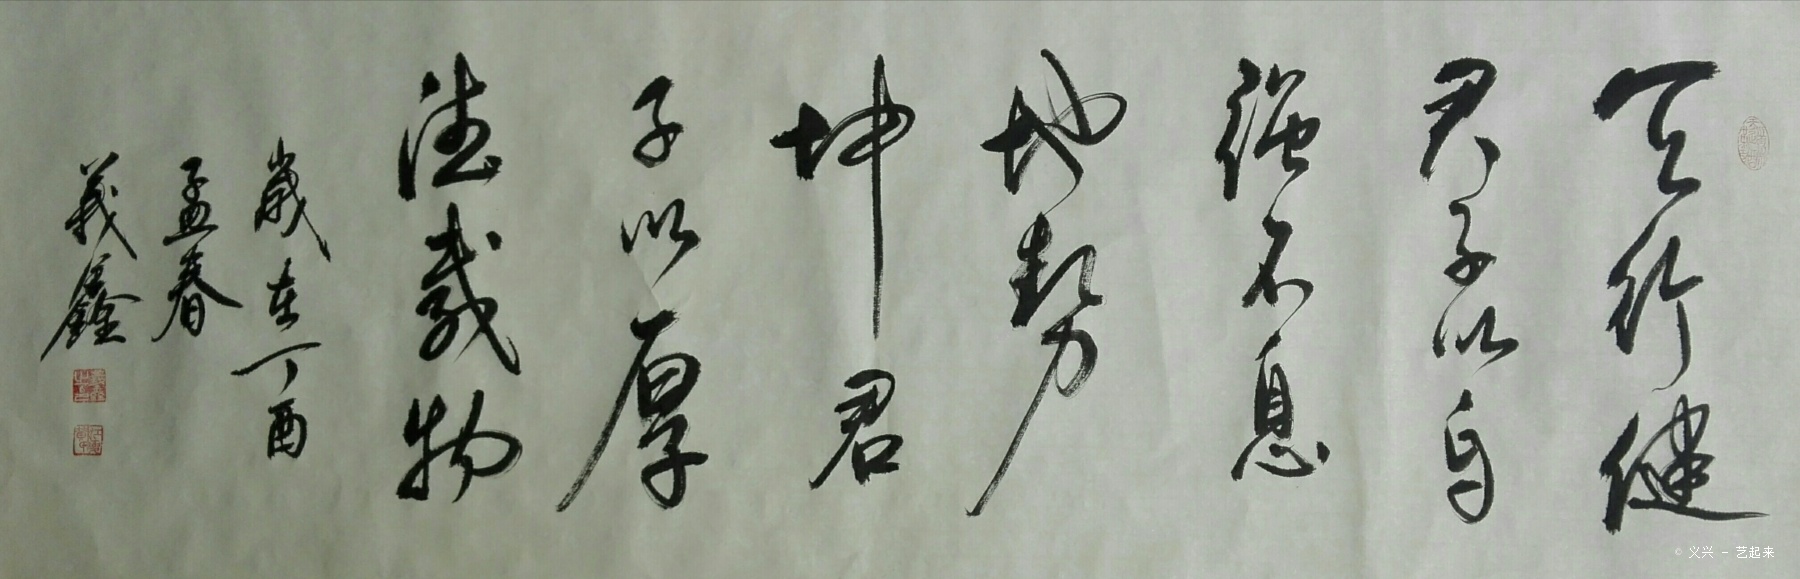 天行健
君子以自
强不息
地势
坤君
子以厚
德载物
歲在丁酉
孟春
義鑫
© 义兴 - 艺起来